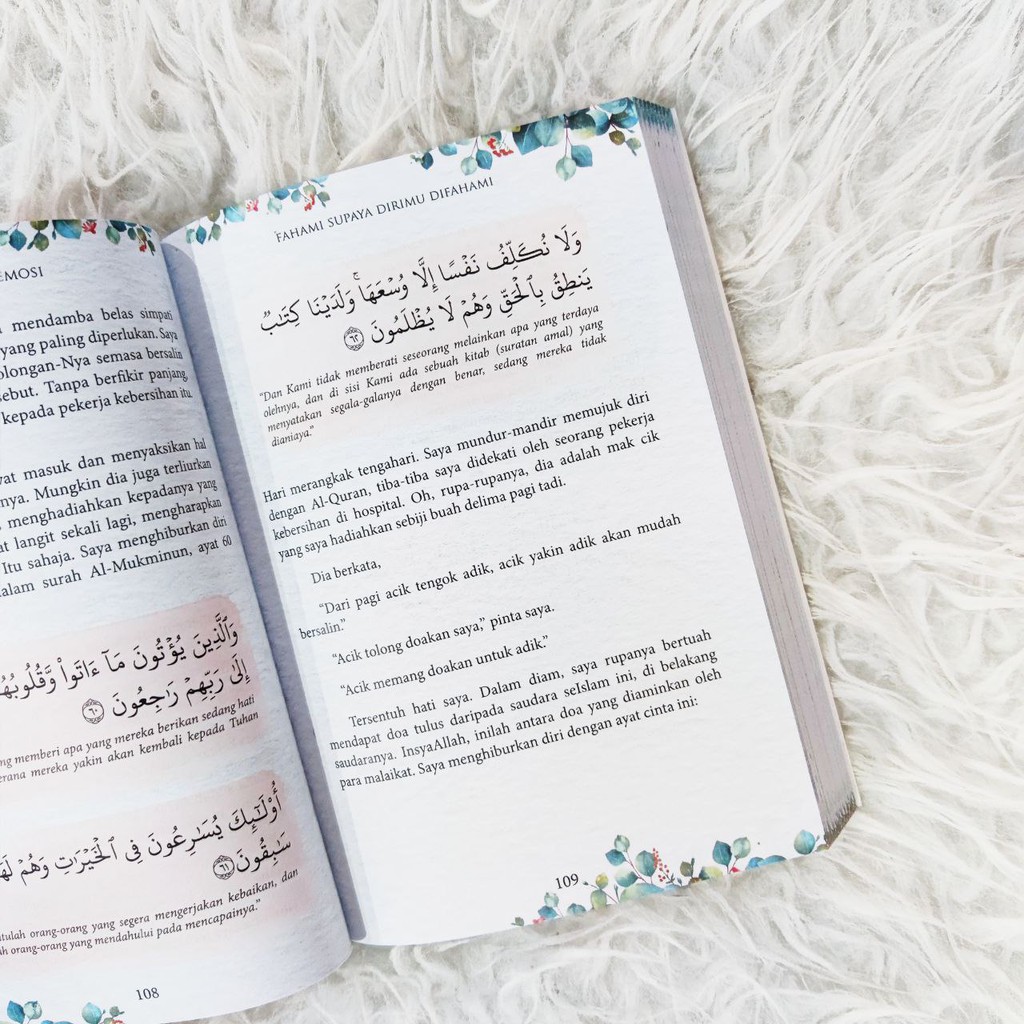 EMOSI
mendamba belas simpati
yang paling diperlukan. Saya
olongan-Nya semasa bersalin
sebut. Tanpa berfikir panjang,
kepada pekerja kebersihan itu.
wat masuk dan menyaksikan hal
nya. Mungkin dia juga terliurkan
, menghadiahkan kepadanya yang
at langit sekali lagi, mengharapkan
Itu sahaja. Saya menghiburkan diri
dalam surah Al-Mukminun, ayat 60
وَٱلَّذِينَ يُؤْتُونَ مَآ ءَاتَوا۟ وَّقُلُوبُهُ
إِلَىٰ رَبِّهِمْ رَٰجِعُونَ ٦٠
ng memberi apa yang mereka berikan sedang hati
erana mereka yakin akan kembali kepada Tuhan
أُو۟لَـٰٓئِكَ يُسَـٰرِعُونَ فِى ٱلْخَيْرَٰتِ وَهُمْ لَهَ
سَـٰبِقُونَ ٦١
itulah orang-orang yang segera mengerjakan kebaikan, dan
ah orang-orang yang mendahului pada mencapainya.”
108
FAHAMI SUPAYA DIRIMU DIFAHAMI
وَلَا نُكَلِّفُ نَفْسًا إِلَّا وُسْعَهَا ۚ وَلَدَيْنَا كِتَـٰبٌ
يَنطِقُ بِٱلْحَقِّ وَهُمْ لَا يُظْلَمُونَ ٦٢
“Dan Kami tidak memberati seseorang melainkan apa yang terdaya
olehnya, dan di sisi Kami ada sebuah kitab (suratan amal) yang
menyatakan segala-galanya dengan benar, sedang mereka tidak
dianiaya.”
Hari merangkak tengahari. Saya mundur-mandir memujuk diri
dengan Al-Quran, tiba-tiba saya didekati oleh seorang pekerja
kebersihan di hospital. Oh, rupa-rupanya, dia adalah mak cik
yang saya hadiahkan sebiji buah delima pagi tadi.
Dia berkata,
“Dari pagi acik tengok adik, acik yakin adik akan mudah
bersalin.”
“Acik tolong doakan saya,” pinta saya.
“Acik memang doakan untuk adik.”
Tersentuh hati saya. Dalam diam, saya rupanya bertuah
mendapat doa tulus daripada saudara seIslam ini, di belakang
saudaranya. InsyaAllah, inilah antara doa yang diaminkan oleh
para malaikat. Saya menghiburkan diri dengan ayat cinta ini:
109